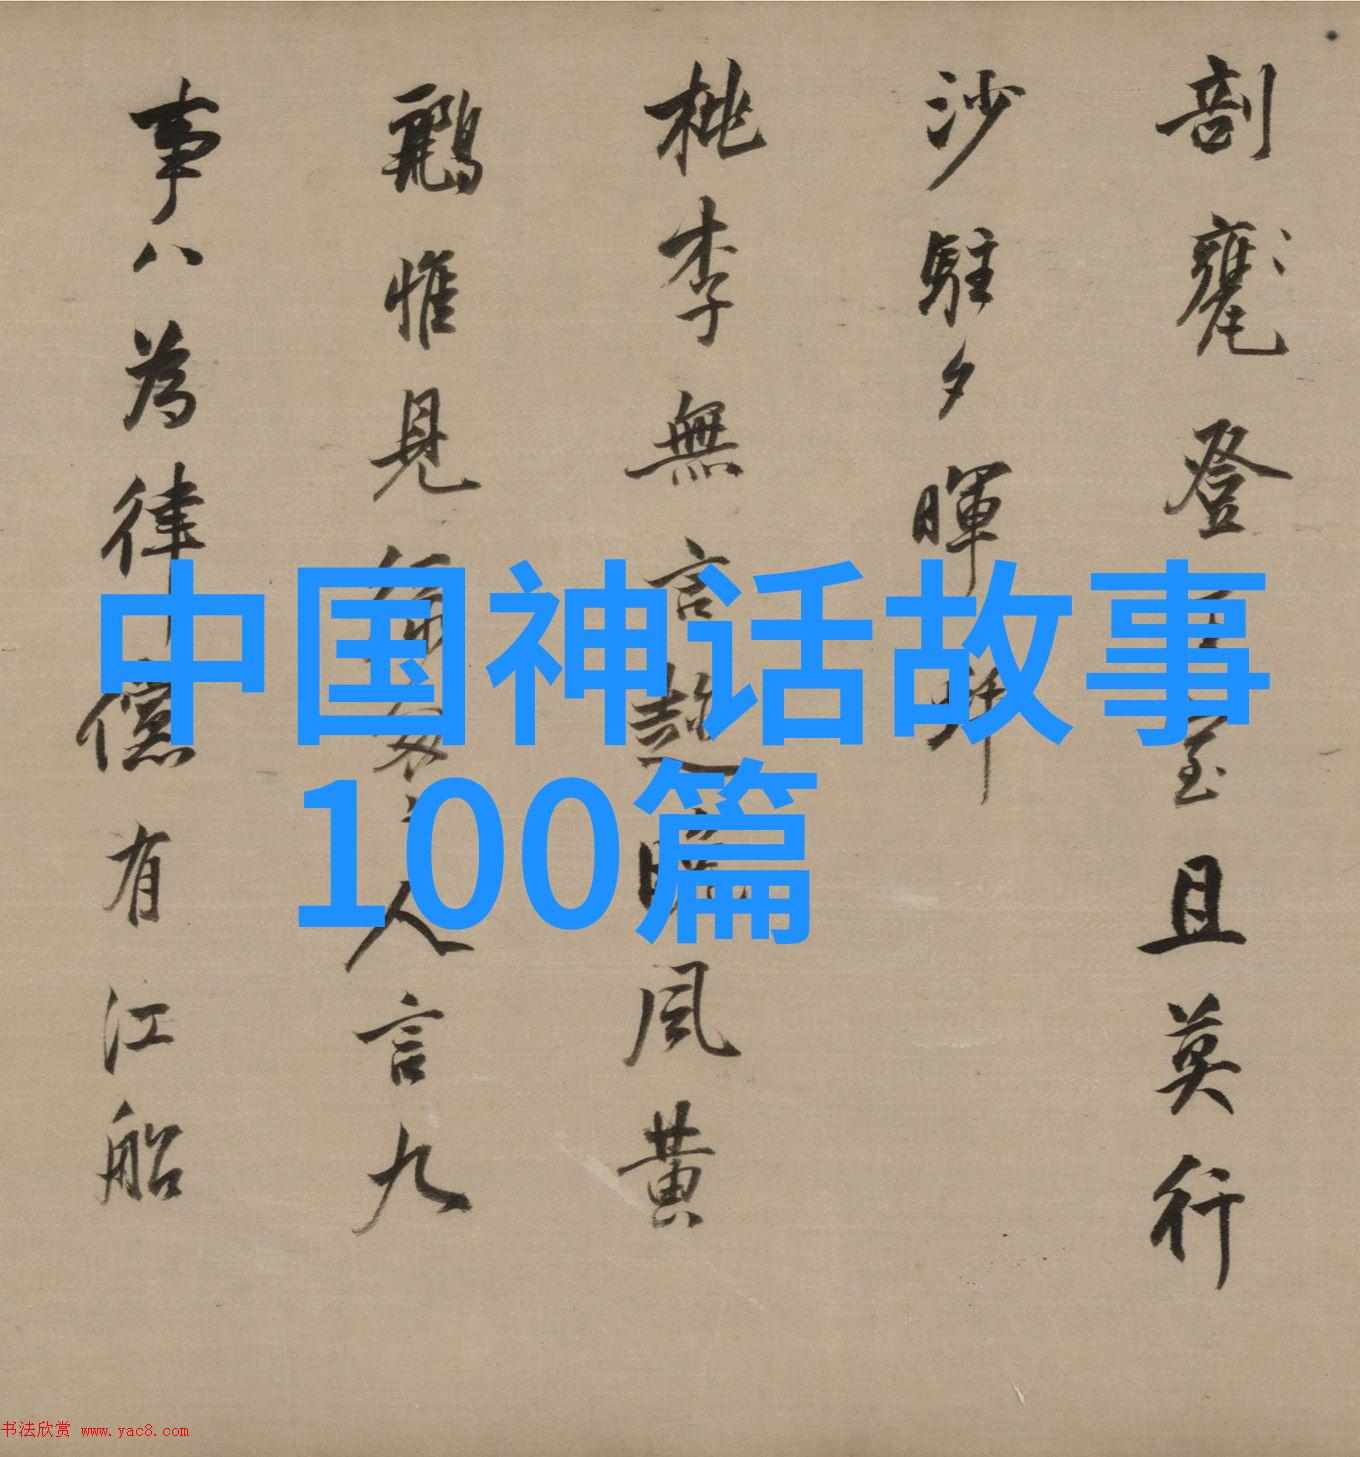 剖甕登
至且莫行
沙駐夕暉
桃李無言
趁
風黃
鸝惟見
人言九
事八為律
儻有江船
中国神话故事
100篇
书法欣赏 www.yac8.com